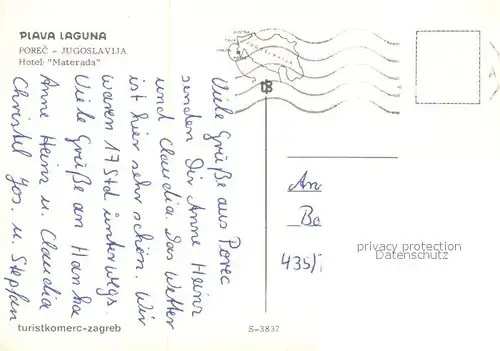 PLAVA LAGUNA
POREČ - JUGOSLAVIJA
Hotel "Materada"
Viele Grüße aus Porec
senden Dir Anne Heinz
und Claudia. Das Wetter
ist hier sehr schön. Wir
waren 17 Std unterwegs.
Viele Grüße an
Anne Heinz u. Claudia
Christel Jos. u. Stephan
An
Bo
435/
privacy protection
Datenschutz
turistkomerc-zagreb
S-3837